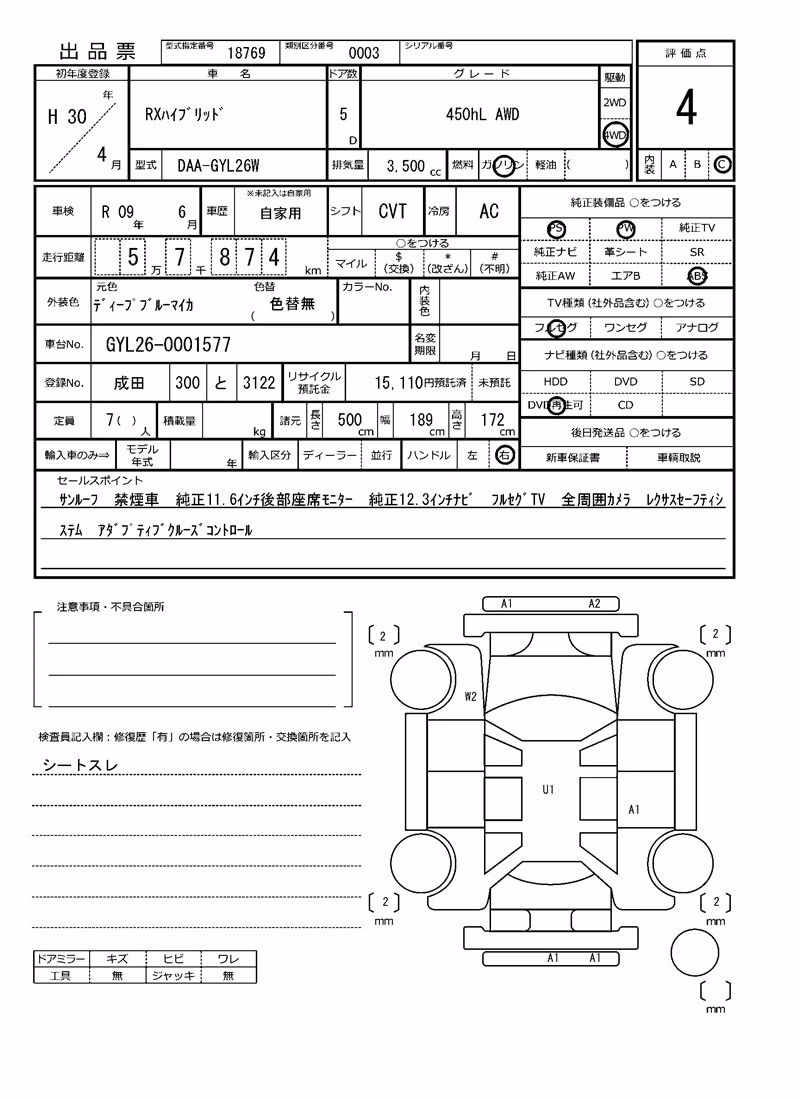 出品票 型式指定番号 18769 類別区分番号 0003 シリアル番号
評価点
4
内装 A B C
初年度登録 車名 ドア数 グレード 駆動
H 30 年 4 月 RXハイブリッド 5 D 450hL AWD 2WD 4WD
型式 DAA-GYL26W 排気量 3,500 cc 燃料 ガソリン 軽油 ( )
車検 R 09 年 6 月 車歴 ※未記入は自家用 自家用 シフト CVT 冷房 AC
走行距離 5 万 7 千 8 7 4 km ○をつける
マイル $ (交換) * (改ざん) # (不明)
外装色 元色 ディープブルーマイカ 色替 ( 色替無 ) カラーNo. 内装色
車台No. GYL26-0001577 名変期限 月 日
登録No. 成田 300 と 3122 リサイクル預託金 15,110円預託済 未預託
定員 7( ) 人 積載量 kg 諸元 長さ 500 cm 幅 189 cm 高さ 172 cm
輸入車のみ⇒ モデル年式 年 輸入区分 ディーラー 並行 ハンドル 左 右
純正装備品 ○をつける
PS PW 純正TV
純正ナビ 革シート SR
純正AW エアB ABS
TV種類(社外品含む)○をつける
フルセグ ワンセグ アナログ
ナビ種類(社外品含む)○をつける
HDD DVD SD
DVD再生可 CD
後日発送品 ○をつける
新車保証書 車輌取説
セールスポイント
サンルーフ 禁煙車 純正11.6インチ後部座席モニター 純正12.3インチナビ フルセグTV 全周囲カメラ レクサスセーフティシ
ステム アダプティブクルーズコントロール
注意事項・不具合箇所
検査員記入欄:修復歴「有」の場合は修復箇所・交換箇所を記入
シートスレ
ドアミラー キズ ヒビ ワレ
工具 無 ジャッキ 無
A1 A2
[ 2 ] mm [ 2 ] mm
W2
U1
A1
[ 2 ] mm [ 2 ] mm
A1 A1
[ ] mm